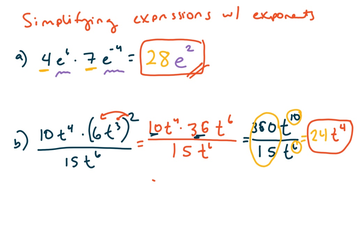 Simplifying expressions w/ exponents
a) 4e⁶ · 7e⁻⁴ = 28e²
b) 10t⁴ · (6t³)² / 15t⁶ = 10t⁴ · 36t⁶ / 15t⁶ = 360 t¹⁰ / 15 t⁶ = 24t⁴